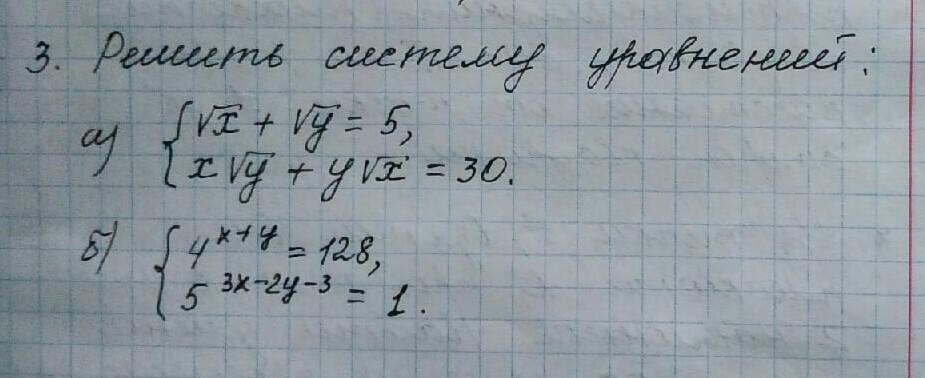 3. Решить систему уравнений:
а) {√x + √y = 5,
x√y + y√x = 30.
б) {4^{x+y} = 128,
5^{3x-2y-3} = 1.